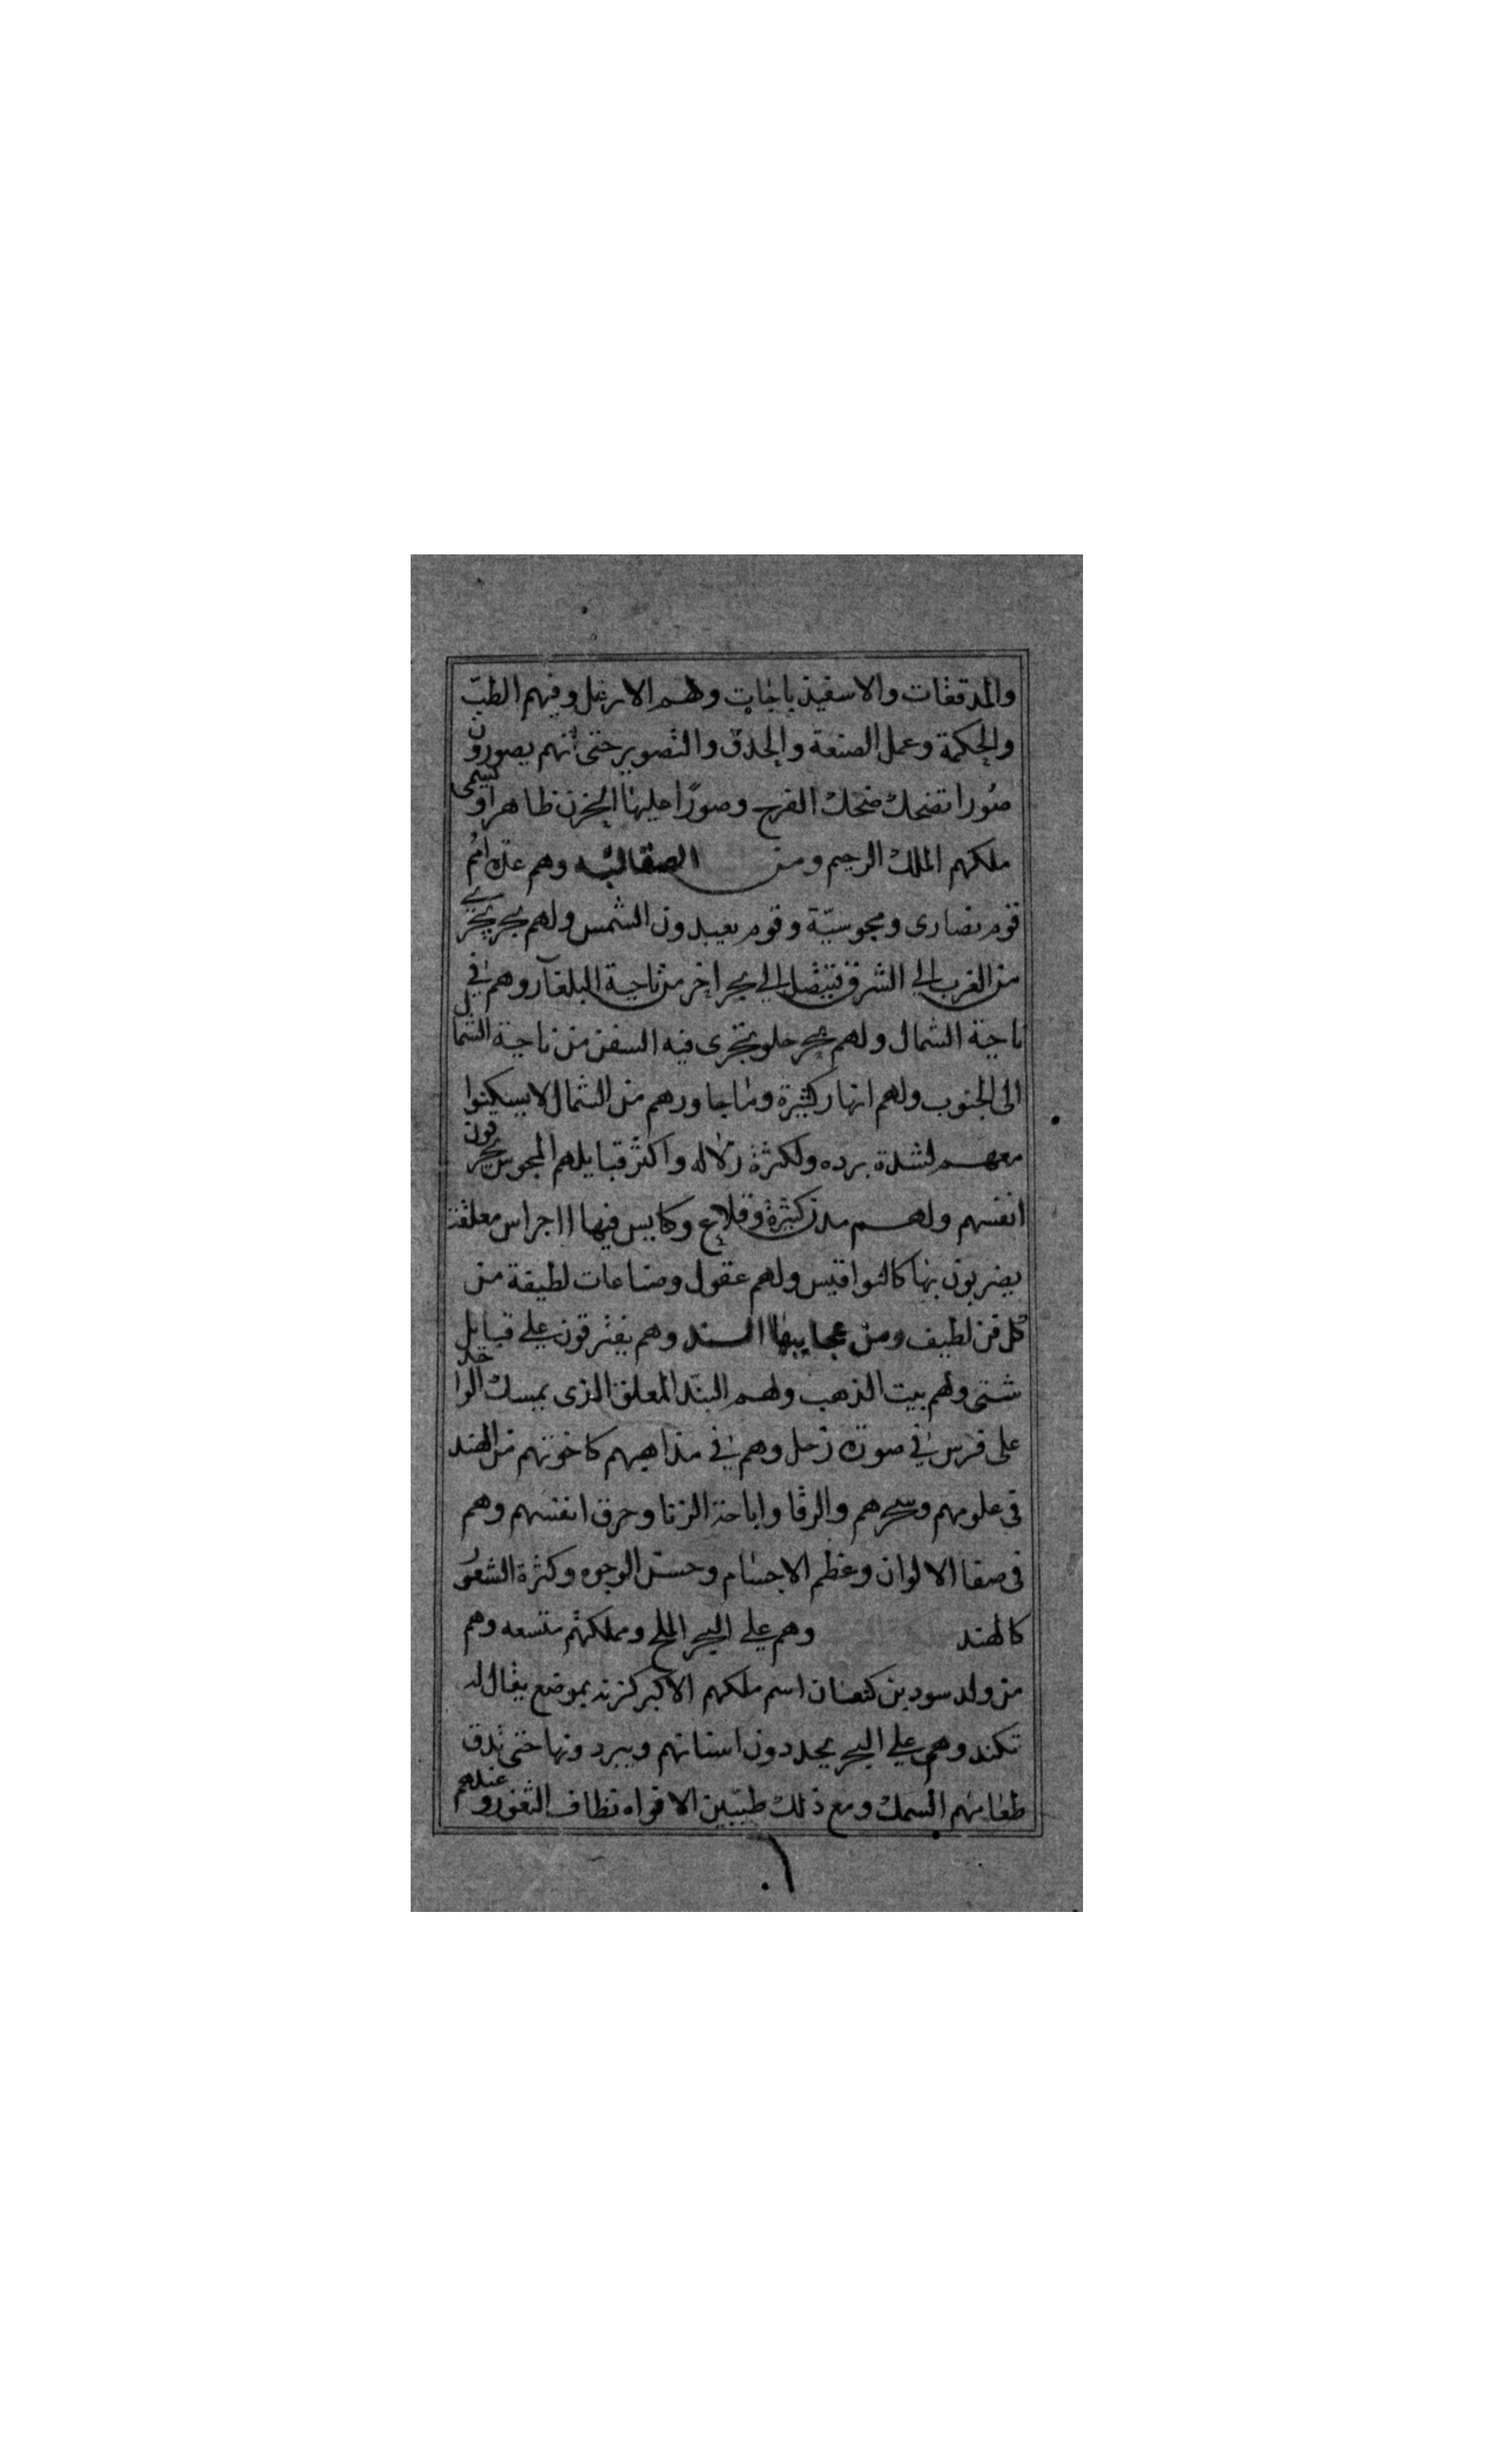 والمدققات والاسفيذباجات وهم الارغل وفيهم الطبّ
والحكمة وعمل الصنعة والحذق والتصوير حتى انهم يصورون
صُورا تضحك ضحك الفرح وصورًا عليها الحزن ظاهرا ويسمى
ملكهم الملك الرحيم ومن الصقالبه وهم عدة امُم
قوم نصارى ومجوسيّة وقوم يعبدون الشمس ولهم بحر يجري
من الغرب الى الشرق يتصل الى بحر اخر من ناحية البلغار وهم في
ناحية الشمال ولهم بحر حلو تجرى فيه السفن من ناحية الشمال
الى الجنوب ولهم انهار كثيرة وما جاورهم من الشمال لا يسكنوا
معهم لشدة برده ولكثرة زلاله واكثر قبايلهم المجوس يحرقون
انفسهم ولهم مدن كثيرة وقلاع وكايس فيها اجراس معلقة
يضربون بها كالنواقيس ولهم عقول وصناعات لطيفة من
كل فن لطيف ومن عجايبها السند وهم يفترقون على قبايل
شتى ولهم بيت الذهب ولهم البند المعلق الذى يمسك الواحد
على فرس في صورة زحل وهم في مذاهبهم كاخوتهم من الهند
في علومهم وسحرهم والرقا واباحة الزنا وحرق انفسهم وهم
في صفا الالوان وعظم الاجسام وحسن الوجوه وكثرة الشعور
كالهند وهم على البحر الملح ومملكتهم متسعه وهم
من ولد سود بن كنعان اسم ملكهم الاكبر كزند بموضع يقال له
تكند وهم على البحر يحددون اسنانهم ويبردونها حتى تدق
طعامهم السمك ومع ذلك طيّبين الافواه نظاف الثغور وعندهم